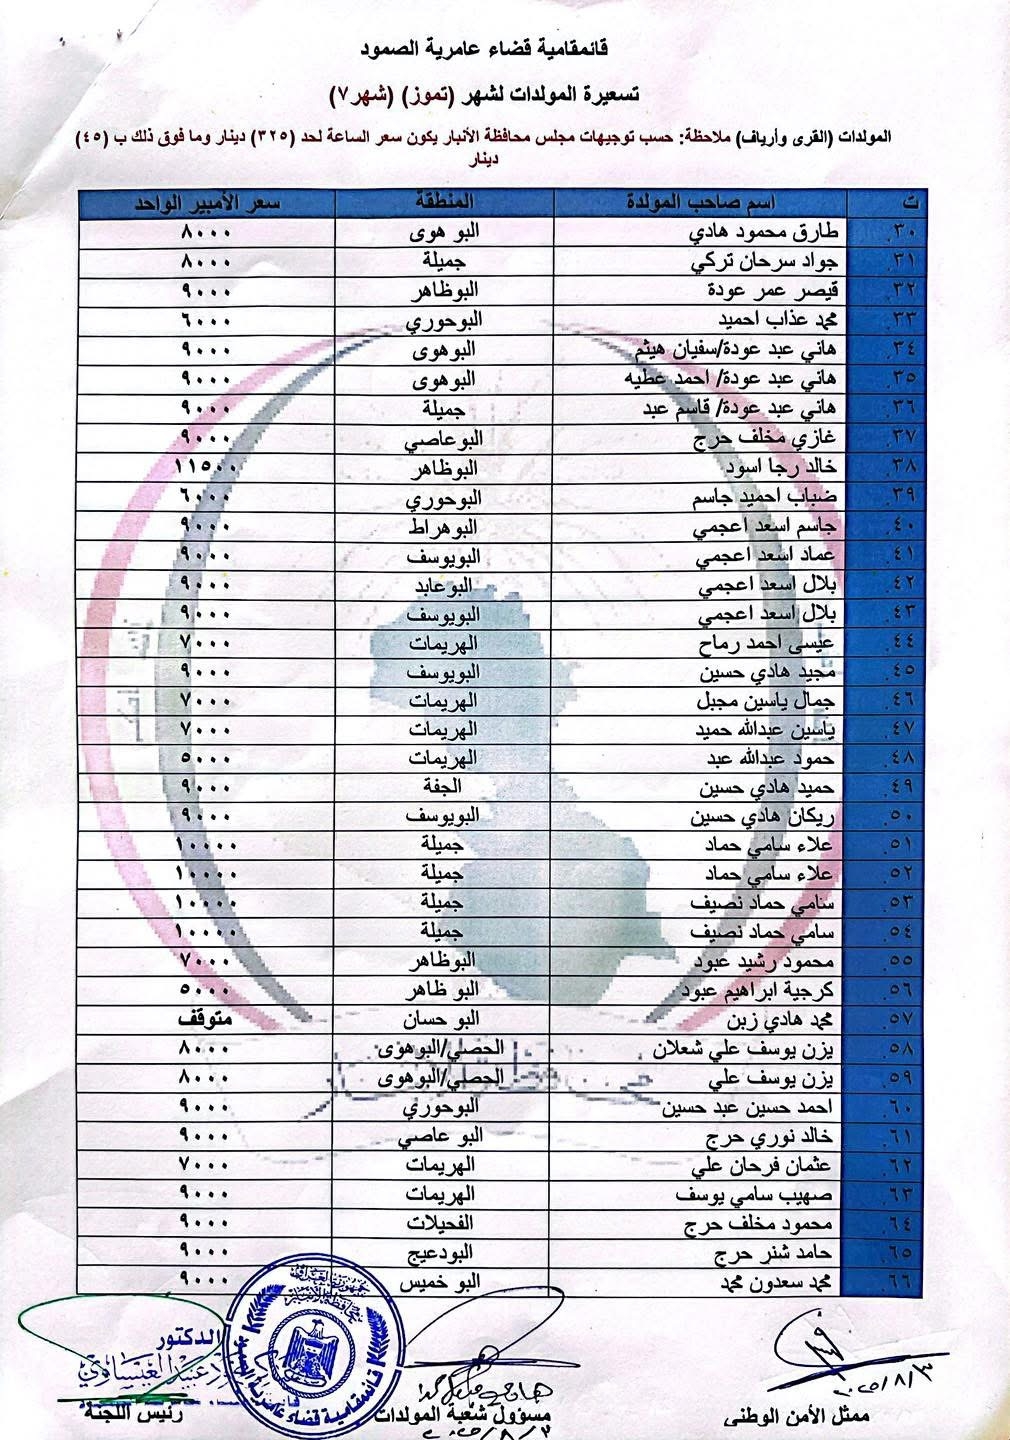 قائمقامية قضاء عامرية الصمود
تسعيرة المولدات لشهر (تموز) (شهر٧)
المولدات (القرى وأرياف) ملاحظة: حسب توجيهات مجلس محافظة الأنبار يكون سعر الساعة لحد (٣٢٥) دينار وما فوق ذلك ب (٤٥)
دينار
ت اسم صاحب المولدة المنطقة سعر الأمبير الواحد
٣٠. طارق محمود هادي البو هوى ٨٠٠٠
٣١. جواد سرحان تركي جميلة ٨٠٠٠
٣٢. قيصر عمر عودة البوظاهر ٩٠٠٠
٣٣. محمد عذاب احميد البوحوري ٦٠٠٠
٣٤. هاني عبد عودة/سفيان هيثم البوهوى ٩٠٠٠
٣٥. هاني عبد عودة/ احمد عطيه البوهوى ٩٠٠٠
٣٦. هاني عبد عودة/ قاسم عبد جميلة ٩٠٠٠
٣٧. غازي مخلف حرج البوعاصي ٩٠٠٠
٣٨. خالد رجا اسود البوظاهر ١١٥٠٠
٣٩. ضباب احميد جاسم البوحوري ٦٠٠٠
٤٠. جاسم اسعد اعجمي البوهراط ٩٠٠٠
٤١. عماد اسعد اعجمي البويوسف ٩٠٠٠
٤٢. بلال اسعد اعجمي البوعابد ٩٠٠٠
٤٣. بلال اسعد اعجمي البويوسف ٩٠٠٠
٤٤. عيسى احمد رماح الهريمات ٧٠٠٠
٤٥. مجيد هادي حسين البويوسف ٩٠٠٠
٤٦. جمال ياسين مجبل الهريمات ٧٠٠٠
٤٧. ياسين عبدالله حميد الهريمات ٧٠٠٠
٤٨. حمود عبدالله عبد الهريمات ٥٠٠٠
٤٩. حميد هادي حسين الجفة ٩٠٠٠
٥٠. ريكان هادي حسين البويوسف ٩٠٠٠
٥١. علاء سامي حماد جميلة ١٠٠٠٠
٥٢. علاء سامي حماد جميلة ١٠٠٠٠
٥٣. سامي حماد نصيف جميلة ١٠٠٠٠
٥٤. سامي حماد نصيف جميلة ١٠٠٠٠
٥٥. محمود رشيد عبود البوظاهر ٧٠٠٠
٥٦. كرجية ابراهيم عبود البو ظاهر ٥٠٠٠
٥٧. محمد هادي زبن البو حسان متوقف
٥٨. يزن يوسف علي شعلان الحصي/البوهوى ٨٠٠٠
٥٩. يزن يوسف علي الحصي/البوهوى ٨٠٠٠
٦٠. احمد حسين عبد حسين البوحوري ٩٠٠٠
٦١. خالد نوري حرج البو عاصي ٩٠٠٠
٦٢. عثمان فرحان علي الهريمات ٧٠٠٠
٦٣. صهيب سامي يوسف الهريمات ٩٠٠٠
٦٤. محمود مخلف حرج الفحيلات ٩٠٠٠
٦٥. حامد شنر حرج البودعيج ٩٠٠٠
٦٦. محمد سعدون محمد البو خميس ٩٠٠٠
جمهورية العراق
محافظة الانبار
قائمقامية قضاء عامرية الصمود
الدكتور
٢٠٢٥/٨/٣
ممثل الأمن الوطني مسؤول شعبة المولدات رئيس اللجنة
٢٠٢٥/٨/٣